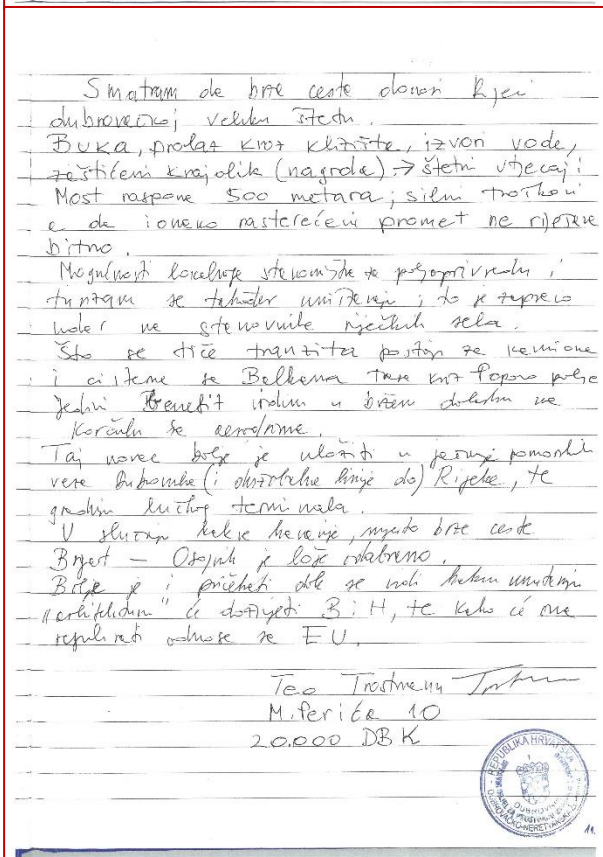 Smatram da brze ceste donosi Rijeci
dubrovačkoj veliku štetu.
Buka, prolaz kroz klizište, izvori vode,
zaštićeni krajolik (nagrada) → štetni utjecaji
Most raspona 500 metara; silni troškovi
a da ionako rasterećeni promet ne rješava
bitno.
Mogućnosti lokalnoga stanovništva za poljoprivredu i
turizam se također uništavaju; to je zapravo
ne stanovnike riječkih sela.
Što se tiče tranzita postoji za kamione
i cisterne sa Balkana trasa kroz Popovo polje
Jedini benefit vidim u bržem dolasku na
Korčulu sa aerodroma.
Taj novac bolje je uložiti u jačanje pomorskih
veza Dubrovnika (i linije do) Rijeke, te
gradnju lučkog terminala.
U slučaju kakve havarije, mjesto brze ceste
Brgat – Osojnik je loše odabrano.
Bolje je i pričekati dok se vidi kakvu unutarnju
će doživjeti BiH, te kako će ona
regulirati odnose sa EU.
Teo Trostmann
M. Perića 10
20.000 DBK
REPUBLIKA HRVATSKA
DUBROVAČKO-NERETVANSKA
DUBROVNIK